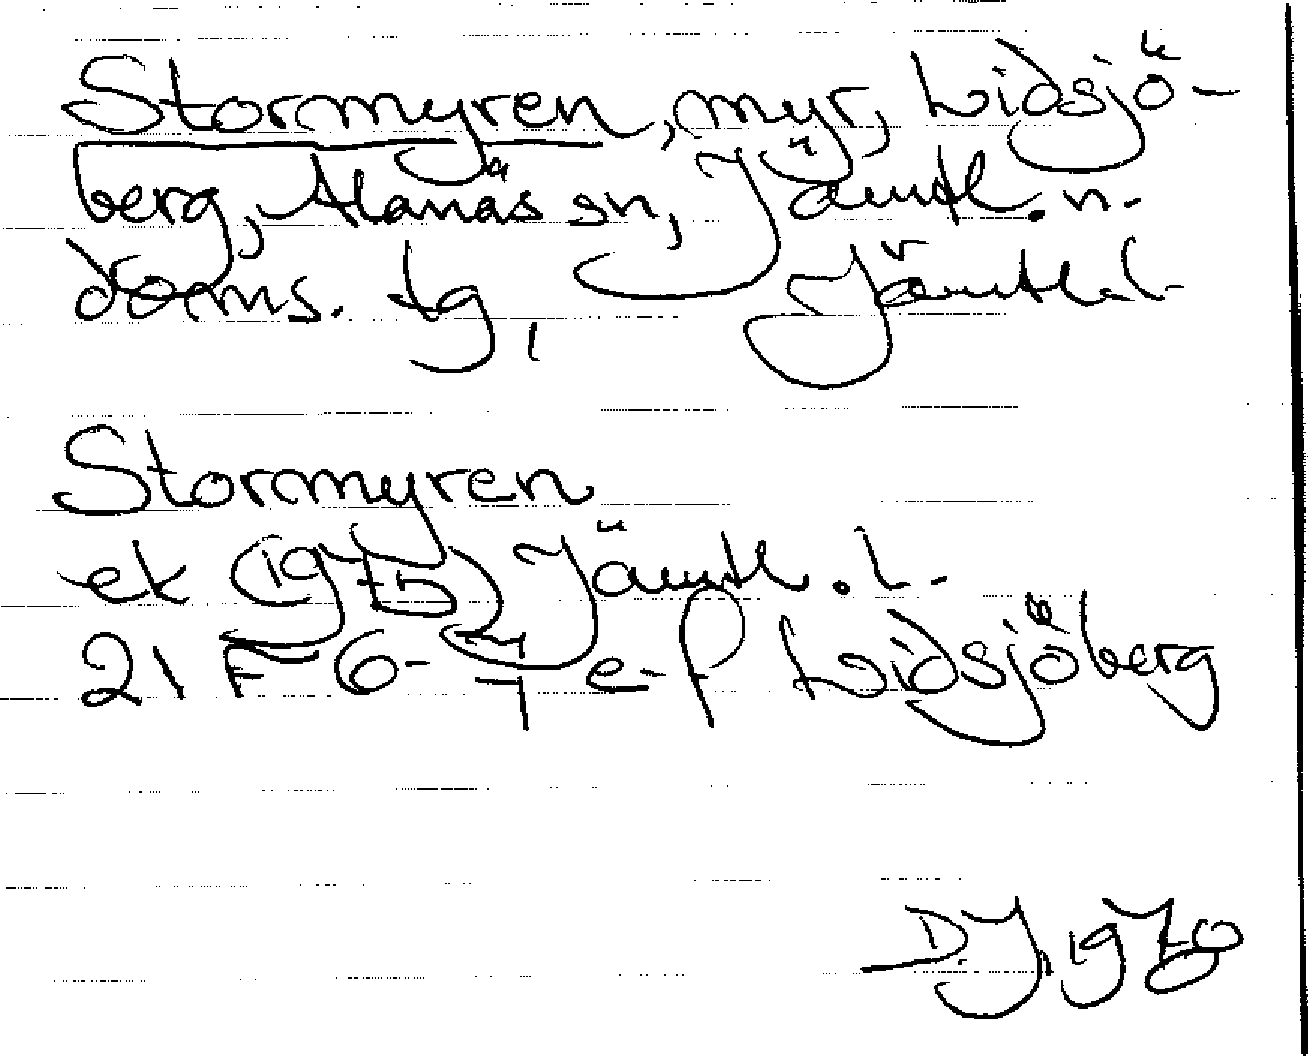 Stormyren, myr, Lidsjö-
berg, Alanäs sn, Jämtl. n.
doms. tg, Jämtl. l.
Stormyren
ek (1975) Jämtl. l.
21 F 6-7 e-f Lidsjöberg
D.J. 1970